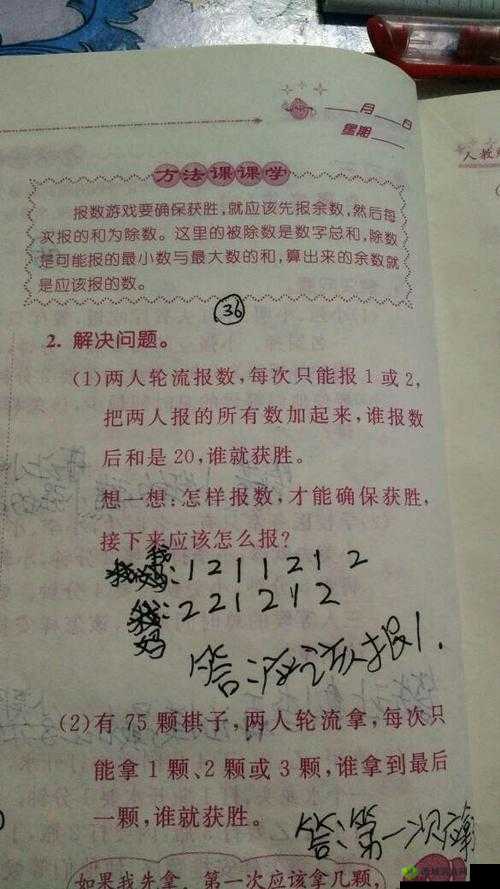 月 日
星期
人教
方法课课学
报数游戏要确保获胜,就应该先报余数,然后每
次报的和为除数。这里的被除数是数字总和,除数
是可能报的最小数与最大数的和,算出来的余数就
是应该报的数。
36
2. 解决问题。
(1)两人轮流报数,每次只能报1或2,
把两人报的所有数加起来,谁报数
后和是20,谁就获胜。
想一想:怎样报数,才能确保获胜,
接下来应该怎么报?
我:1 2 1 1 2 1 2
妈:2 2 1 2 1 2
答:应该报1.
(2)有75颗棋子,两人轮流拿,每次只
能拿1颗、2颗或3颗,谁拿到最后
一颗,谁就获胜。
答:第一次应拿
如果我先拿,第一次应该拿几颗,